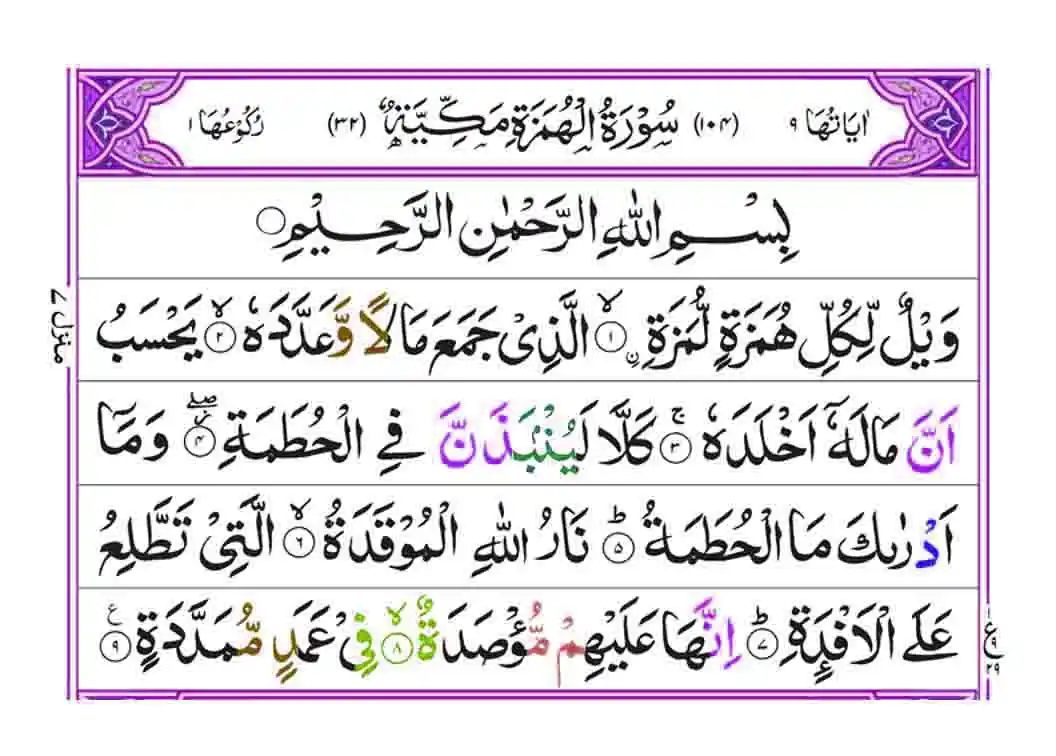 اٰیَاتُهَا ۹ (۱۰۴) سُوْرَةُ الْهُمَزَةِ مَكِّیَّةٌ (۳۲) رُكُوْعُهَا ۱
بِسْمِ اللّٰهِ الرَّحْمٰنِ الرَّحِیْمِ
وَیْلٌ لِّكُلِّ هُمَزَةٍ لُّمَزَةِ ۙ﴿۱﴾ ِ۟ن الَّذِیْ جَمَعَ مَالًا وَّعَدَّدَهٗ ۙ﴿۲﴾ یَحْسَبُ
اَنَّ مَالَهٗۤ اَخْلَدَهٗ ۚ﴿۳﴾ كَلَّا لَیُنْۢبَذَنَّ فِی الْحُطَمَةِ ۖ٘﴿۴﴾ وَمَاۤ
اَدْرٰىكَ مَا الْحُطَمَةُ ؕ﴿۵﴾ نَارُ اللّٰهِ الْمُوْقَدَةُ ۙ﴿۶﴾ الَّتِیْ تَطَّلِعُ
عَلَی الْاَفْـِٕدَةِ ؕ﴿۷﴾ اِنَّهَا عَلَیْهِمْ مُّؤْصَدَةٌ ۙ﴿۸﴾ فِیْ عَمَدٍ مُّمَدَّدَةٍ ﴿۹﴾ ع
منزل ۷
ع ۹ ۲۹